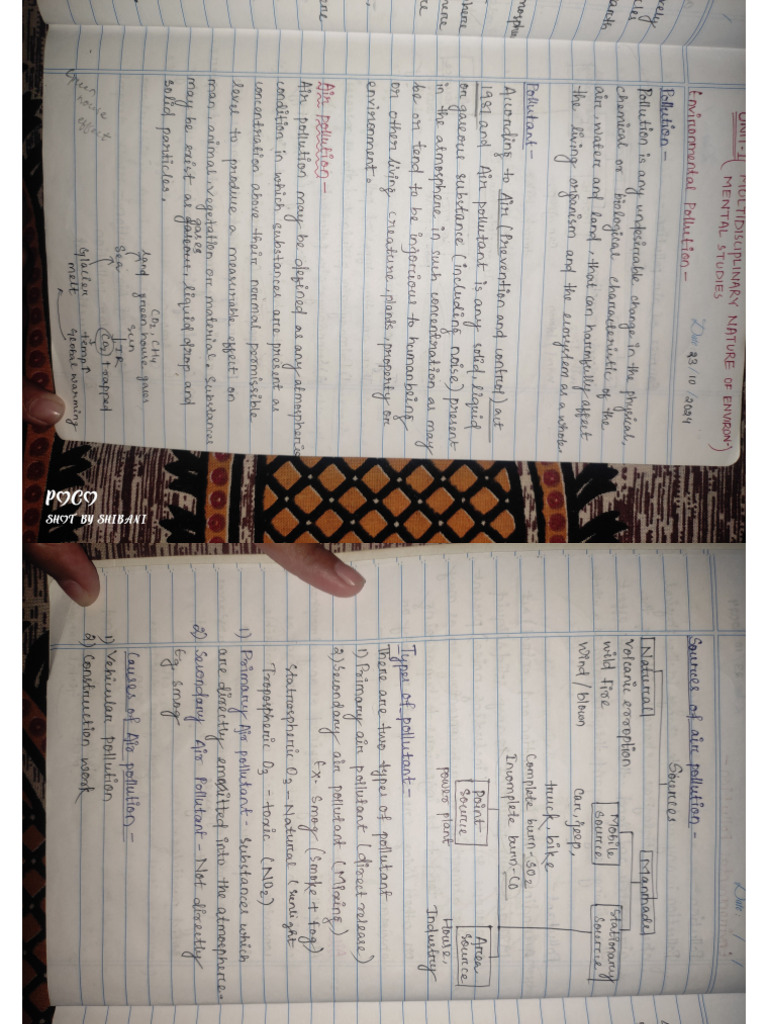 UNIT-1 MULTIDISCIPLINARY NATURE OF ENVIRON-
MENTAL STUDIES
Date 23/10/2024
Environmental Pollution -
Pollution -
Pollution is any undesirable change in the physical,
chemical or biological characteristic of the
air, water and land, that can harmfully affect
the living organism and the ecosystem as a whole.
Pollutant -
According to Air (Prevention and control) act
1981 and Air pollutant is any solid, liquid
or gaseous substance (including noise) present
in the atmosphere in such concentration as may
be or tend to be injurious to human being
or other living creature, plants, property or
environment.
Air Pollution -
Air pollution may be defined as any atmospheric
condition in which substances are present at
concentration above their normal permissible
level to produce a measurable effect on
man, animal, vegetation or material. Substances
gases
may be exist as gaseous, liquid drop, and
solid particles.
Green
house
effect
CO2, CH4
Land green house gases
sun
Sea IR
CO2 trapped
Glacier temp↑
melt global warming
POCO
SHOT BY SHIBANI
Sources of air pollution -
Sources
Natural Manmade
Volcanic erroption Mobile source Stationary source
wild fire
Wind/blown Car, jeep,
truck, bike
Complete burn - SO2
Incomplete burn - CO
Point source Area source
power plant House, Industry
Types of pollutant -
There are two types of pollutant
1) Primary air pollutant (direct release)
2) Secondary air pollutant (Mixing)
Ex. Smog (Smoke + fog)
Statrospheric O3 - Natural (sunlight
Tropospheric O3 - toxic (NO2)
1) Primary Air pollutant - Substances which
are directly emmitted into the atmosphere.
2) Secondary Air Pollutant - Not directly
Eg Smog
Causes of Air pollution -
1) Vehicular pollution
2) Construction work